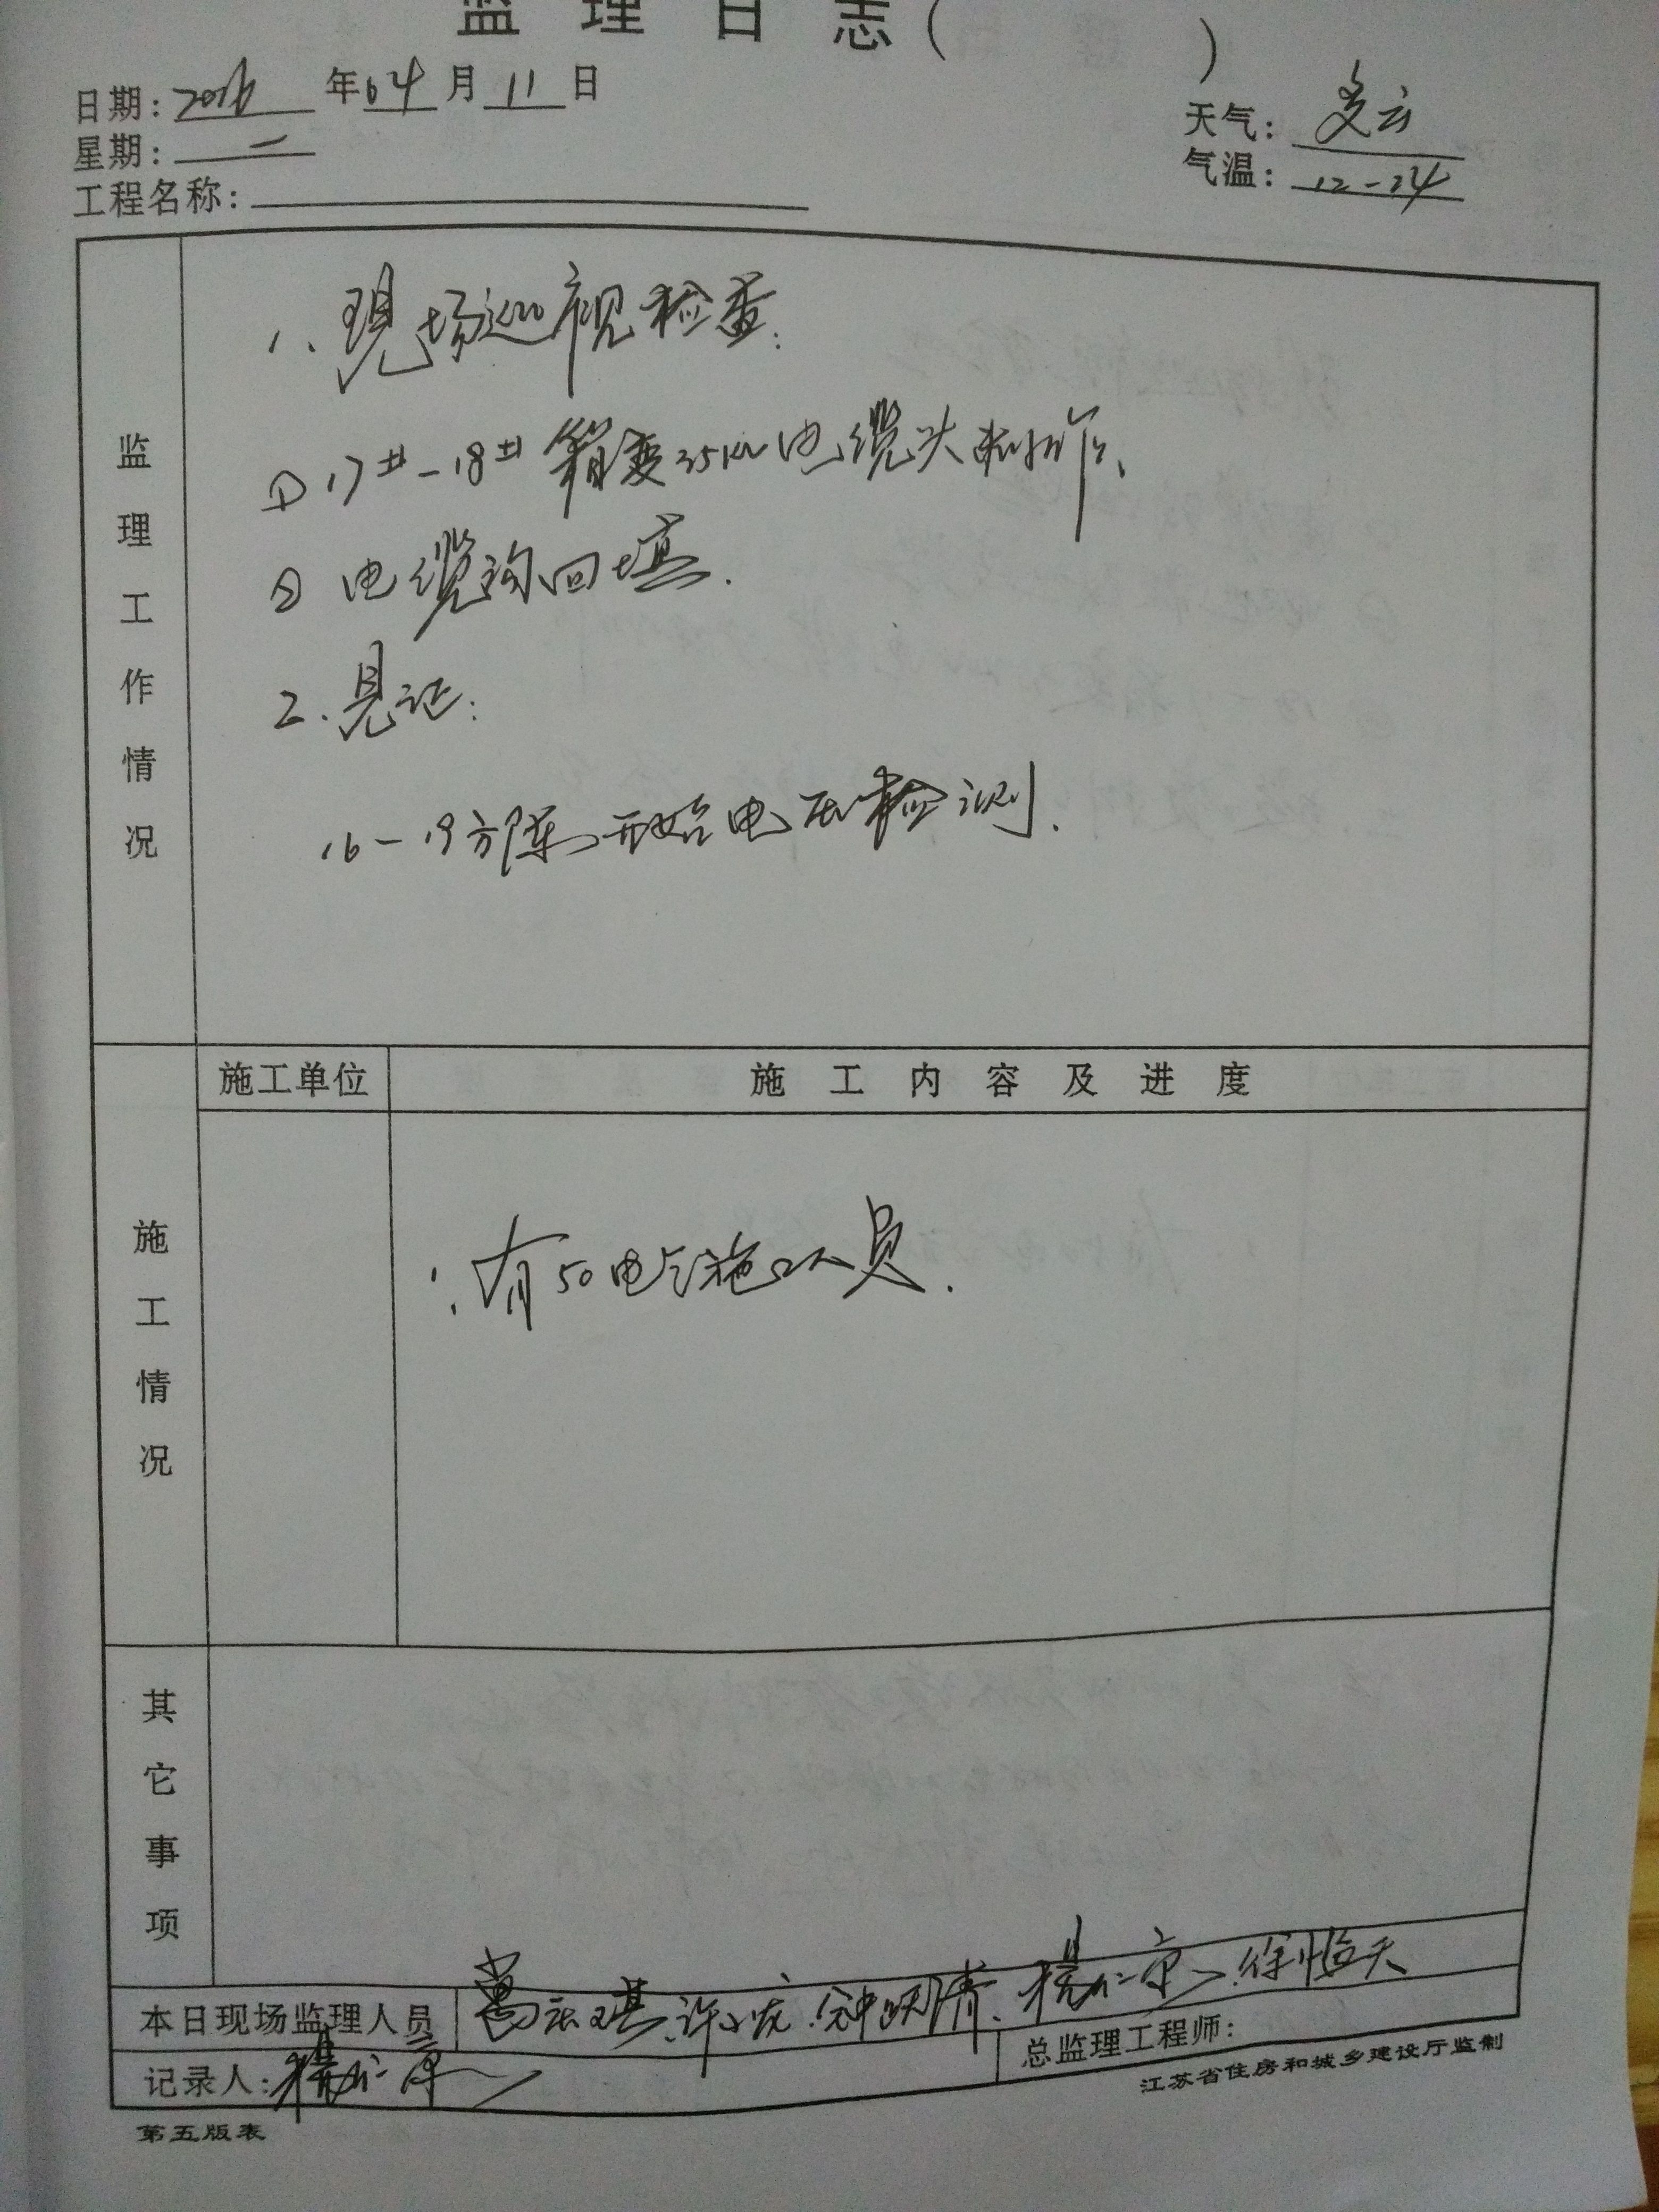 监理日志( )
日期: 2016 年 04 月 11 日
天气: 多云
星期: 一
气温: 12-24
工程名称:
监理工作情况
1、现场巡视检查:
① 17#-18#箱变35KV电缆头制作、
② 电缆沟回填.
2.见证:
16-19方阵开始电压检测.
施工单位
施工内容及进度
施工情况
1.有50电气施工人员.
其它事项
本日现场监理人员
记录人:
总监理工程师:
江苏省住房和城乡建设厅监制
第五版表